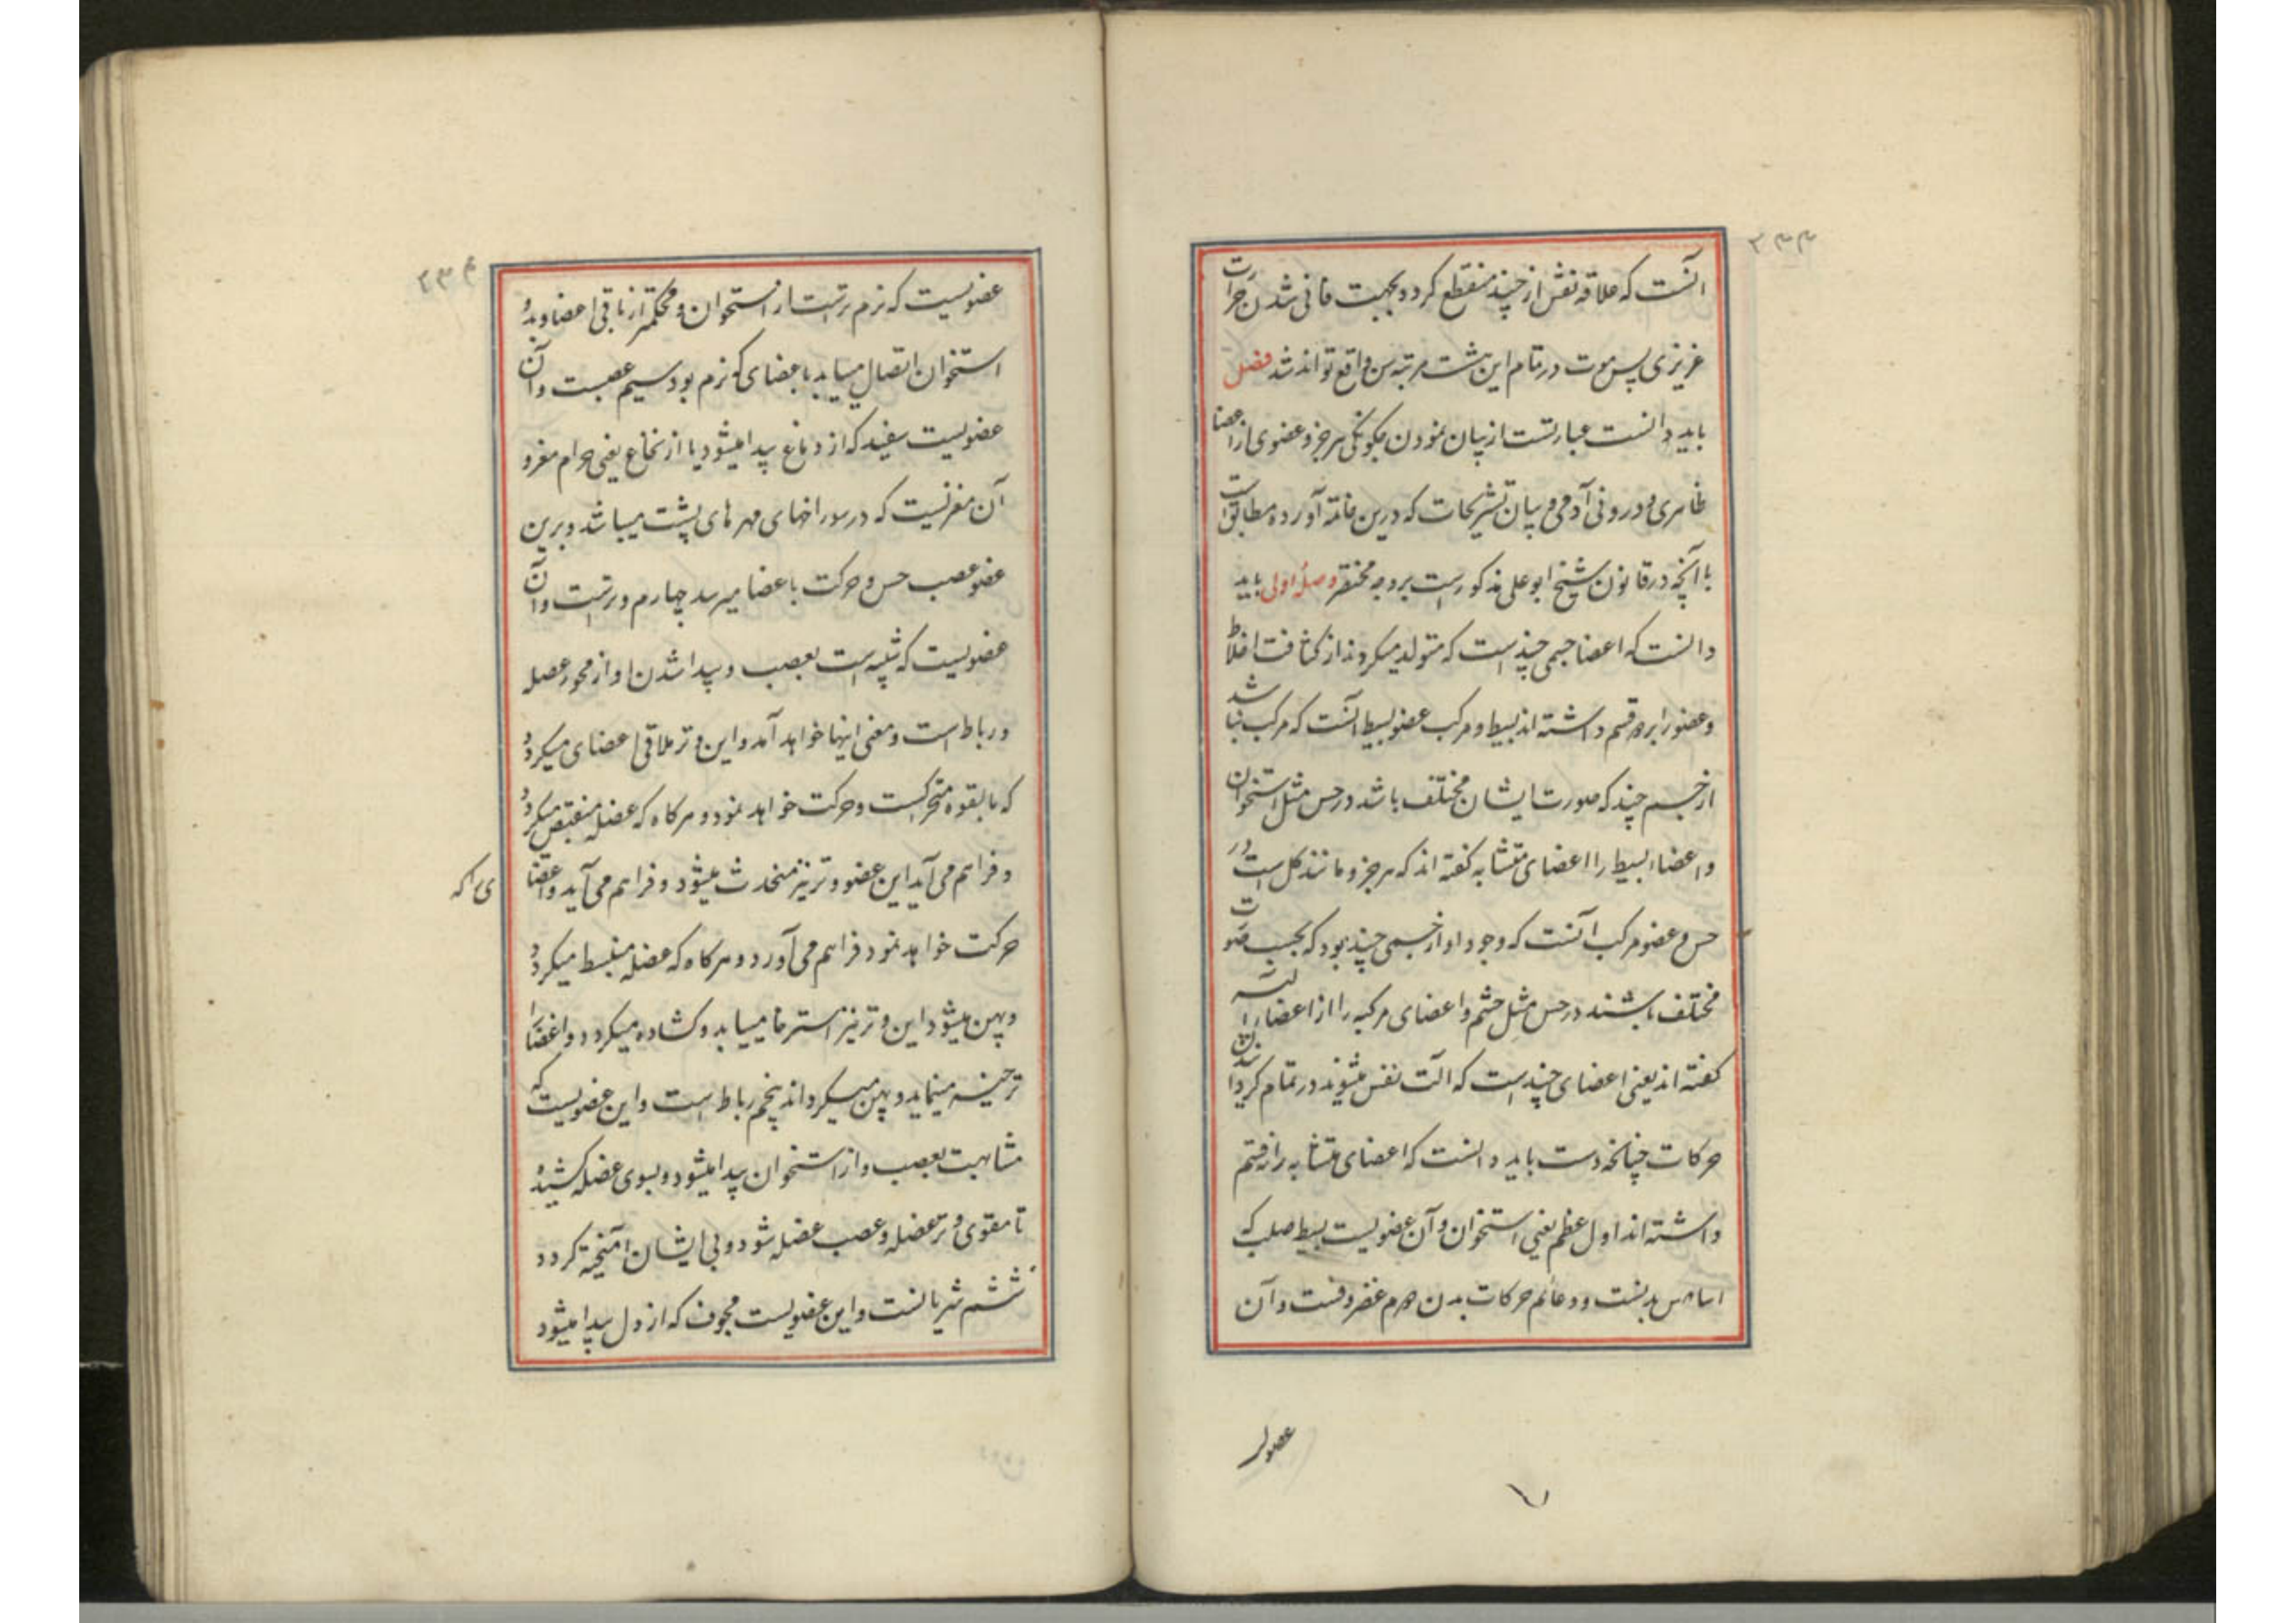 ۲۳۳
آنست که علاقه نفس از چند منقطع کردد بجهت فانی شدن حرارت
غریزی پس موت در تمام این هشت مرتبه سن واقع تواند شد فصل
باید دانست عبارتست از بیان نمودن چکونکی هر جزو عضوی از اعضا
ظاهری و درونی آدمی و بیان تشریحات که درین خاتمه آورده مطابق است
با آنچه در قانون شیخ ابو علی مذکور است بر وجه مختصر وصله اولی باید
دانست که اعضا جسمی چند است که متولد میکردند از کثافت اخلاط
و عضو را بر دو قسم داشته اند بسیط و مرکب عضو بسیط آنست که مرکب نباشد
از جسم چند که صورت ایشان مختلف باشد در حس مثل استخوان
و اعضاء بسیط را اعضای متشابه کفته اند که هر جزو مانند کل است در
حس و عضو مرکب آنست که وجود او از جسمی چند بود که بحسب صورت
مختلف باشند در حس مثل چشم و اعضای مرکبه را از اعضا آلیه
کفته اند یعنی اعضای چند است که آلت نفس میشوند در تمام کردانیدن
حرکات چنانچه دست باید دانست که اعضای متشابه را نه قسم
داشته اند اول عظم یعنی استخوان و آن عضویست بسیط صلب که
اساس بدنست و دعائم حرکات بدن دوم غضروفست و آن
عضویـ
۲۳۴
عضویست که نرم ترست از استخوان و محکمتر از باقی اعضا و بدو
استخوان اتصال مییابد باعضای که نرم بود سیم عصبست و آن
عضویست سفید که از دماغ پیدا میشود یا از نخاع یعنی حرام مغز و
آن مغزیست که در سوراخهای مهرهای پشت میباشد و برین
عضو عصب حس و حرکت باعضا میرسد چهارم وترست و آن
عضویست که شبیه است بعصب و پیدا شدن او از محور عضله
و رباط است و معنی اینها خواهد آمد و این وتر ملاقی اعضای میکردد
که بالقوه متحرکست و حرکت خواهد نمود و هرکاه که عضله منقبض میکردد
و فراهم می آید این عضو وتر نیز منجذب میشود و فراهم می آید و اعضا
ی را که
حرکت خواهد نمود فراهم می آورد و هرکاه که عضله منبسط میکردد
و پهن میشود این وتر نیز استرخا مییابد و کشاده میکردد و اعضا را
میکرداند پنجم رباط است و این عضویست که
مشابهت بعصب و از استخوان پیدا میشود و بسوی عضله کشیده
تا مقوی وتر عضله و عصب عضله شود و بی ایشان آمیخته کردد
ششم شریانست و این عضویست مجوف که از دل پیدا میشود